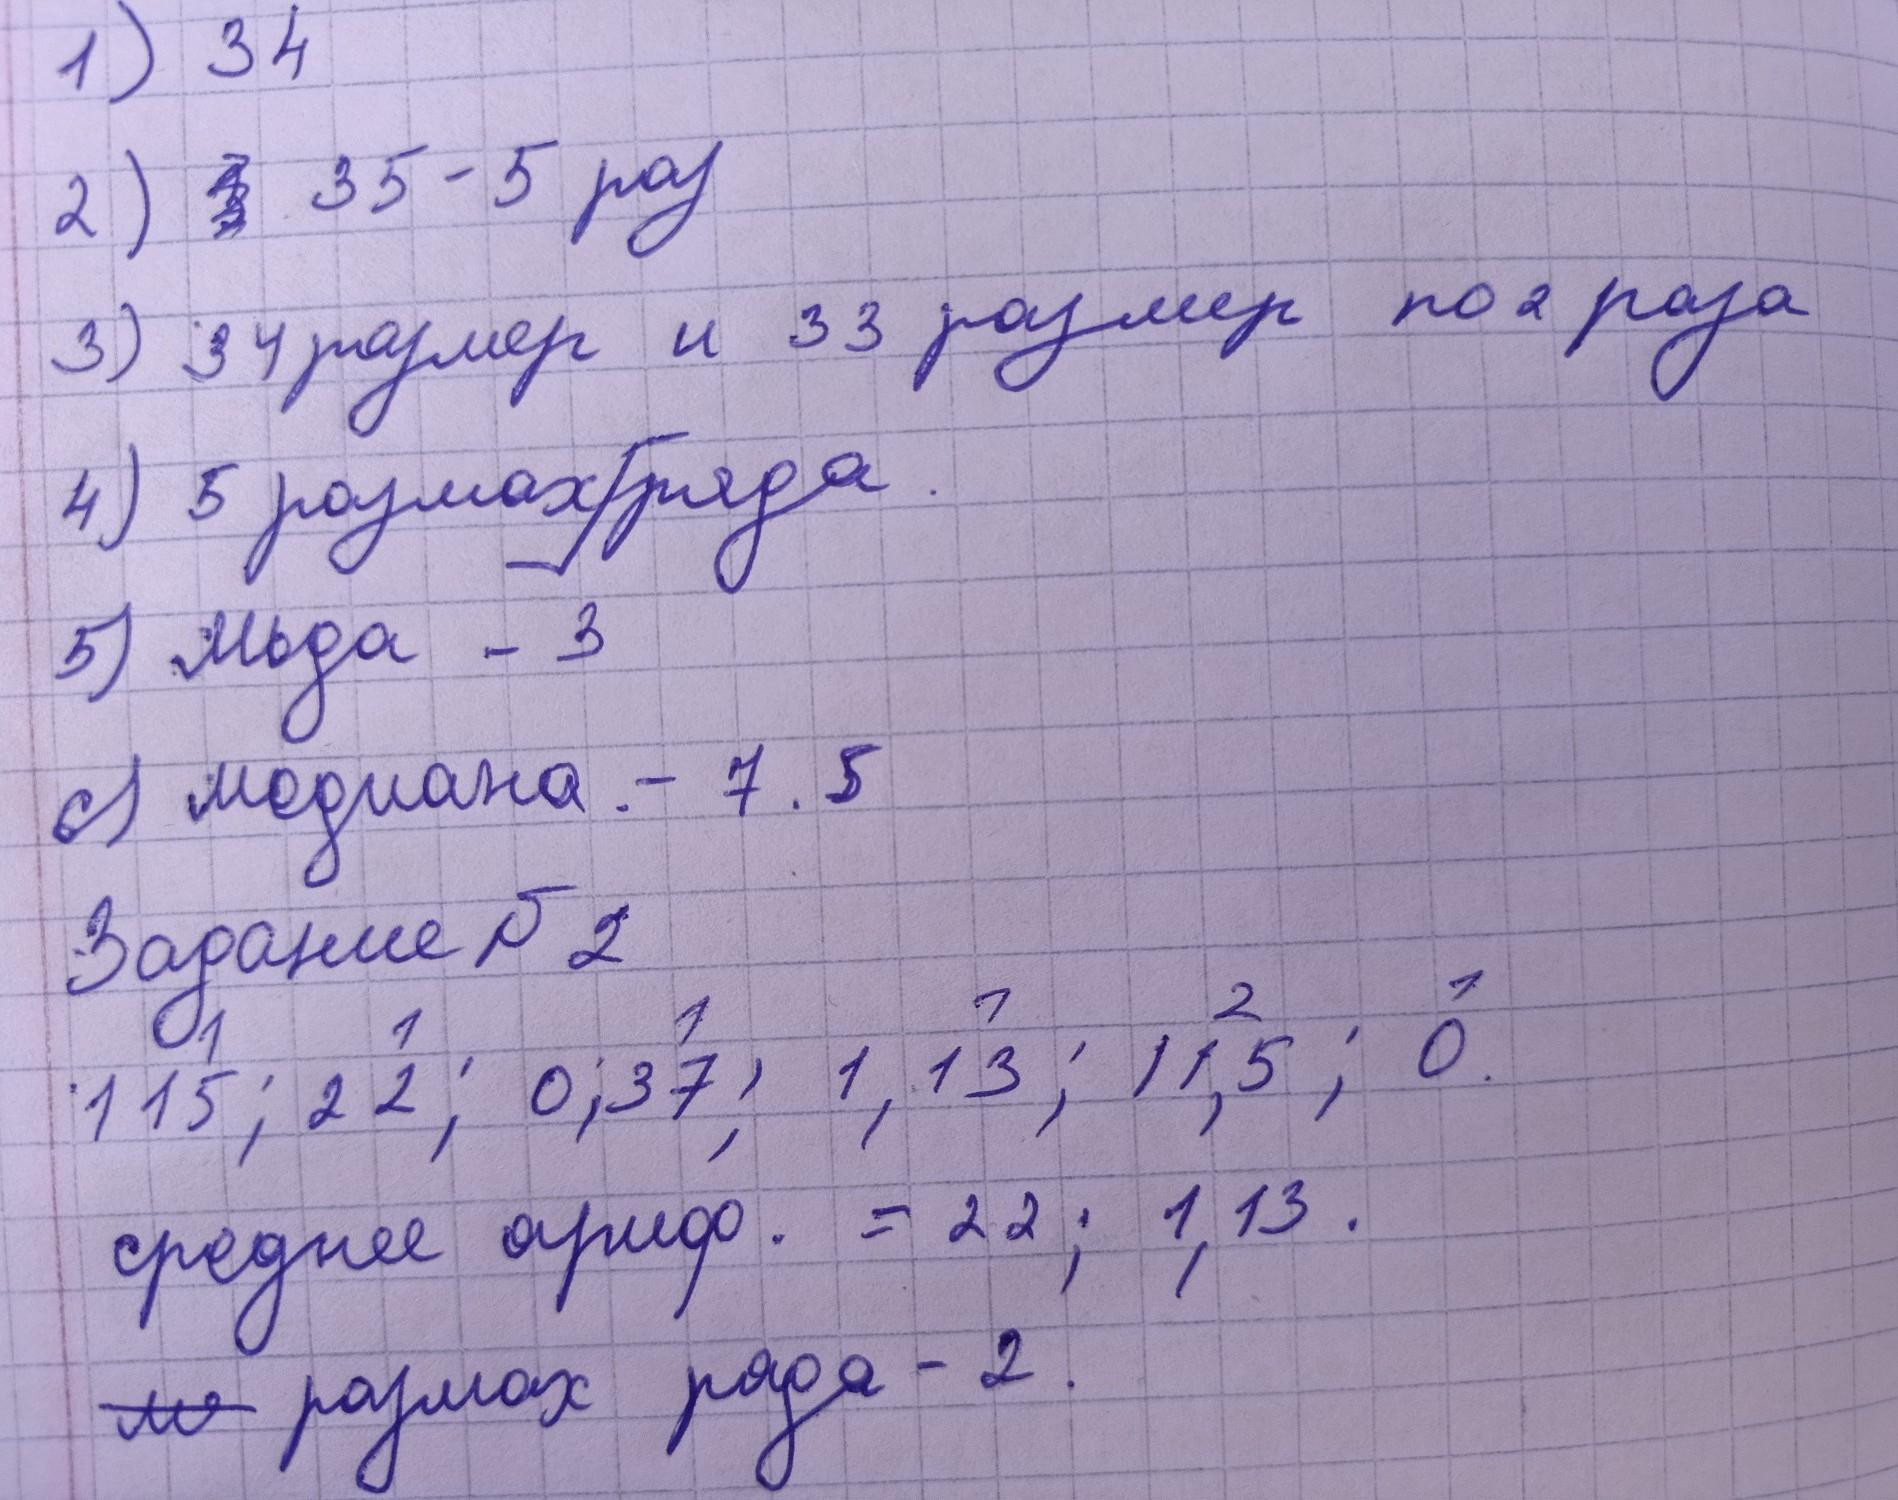 1) 34
2) 35 - 5 раз
3) 34 размер и 33 размер по 2 раза
4) 5 размах ряда.
5) Мода - 3
6) медиана. - 7.5
Задание № 2
1 1 1 1 2 1
115; 22; 0,37; 1,13; 11,5; 0.
среднее ариф. = 22; 1,13.
размах ряда - 2.